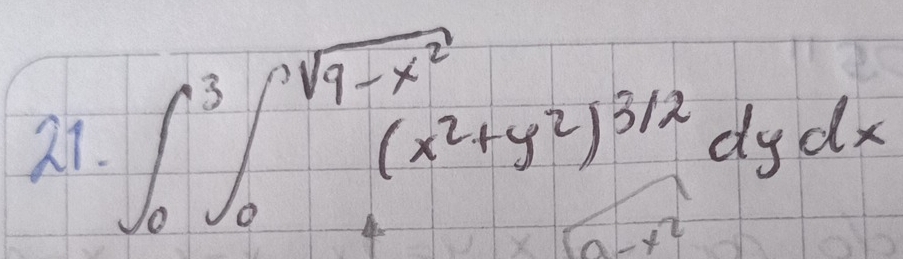 21. ∫₀³ ∫₀^√(9-x²) (x²+y²)^3/2 dy dx
√9-x²